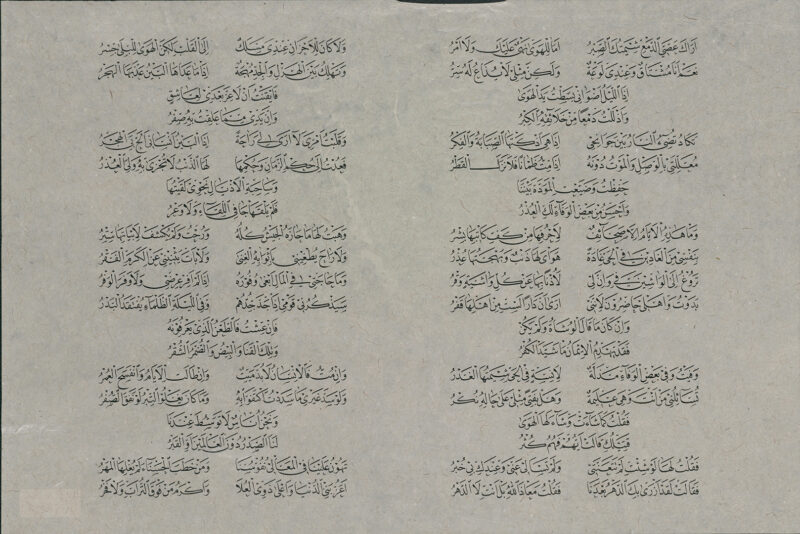 أراك عصي الدمع شيمتك الصبر أما للهوى نهي عليك ولا أمر
نعم أنا مشتاق وعندي لوعة ولكن مثلي لا يذاع له سر
إذا الليل أضواني بسطت يد الهوى
وأذللت دمعا من خلائقه الكبر
تكاد تضيء النار بين جوانحي إذا هي أذكتها الصبابة والفكر
معللتي بالوصل والموت دونه إذا مت ظمآنا فلا نزل القطر
حفظت وضيعت المودة بيننا
وأحسن من بعض الوفاء لك العذر
وما هذه الأيام إلا صحائف لأحرفها من كف كاتبها بشر
بنفسي من الغادين في الحي غادة هواي لها ذنب وبهجتها عذر
تروغ إلى الواشين في وإن لي لأذنا بها عن كل واشية وقر
بدوت وأهلي حاضرون لأنني أرى أن دارا لست من أهلها قفر
وإن كان ما قال الوشاة ولم يكن
فقد يهدم الإيمان ما شيد الكفر
وفيت وفي بعض الوفاء مذلة لإنسة في الحي شيمتها الغدر
تسائلني من أنت وهي عليمة وهل بفتى مثلي على حاله نكر
فقلت كما شاءت وشاء لها الهوى
قتيلك قالت أيهم فهم كثر
فقلت لها لو شئت لم تتعنتي ولم تسألي عني وعندك بي خبر
فقالت لقد أزرى بك الدهر بعدنا فقلت معاذ الله بل أنت لا الدهر
ولا كان للأحزان عندي مسلك إلى القلب لكن الهوى للبلى جسر
وتهلك بين الهزل والجد مهجة إذا ما عداها البين عذبها الهجر
فأيقنت أن لا عز بعدي لعاشق
وأن يدي مما علقت به صفر
وقلبت أمري لا أرى لي راحة إذا البين أنساني ألح بي الهجر
فعدت إلى حكم الزمان وحكمها لها الذنب لا تجزى به ولي العذر
وساحبة الأذيال نحوي لقيتها
فلم يلقها جافي اللقاء ولا وعر
وهبت لها ما حازه الجيش كله ورحت ولم يكشف لأبياتها ستر
ولا راح يطغيني بأثوابه الغنى ولا بات يثنيني عن الكرم الفقر
وما حاجتي في المال أبغي وفوره إذا لم أفر عرضي ولا وفر الوفر
سيذكرني قومي إذا جد جدهم وفي الليلة الظلماء يفتقد البدر
فإن عشت فالطعن الذي يعرفونه
وتلك القنا والبيض والضمر الشقر
وإن مت فالإنسان لا بد ميت وإن طالت الأيام وانفسح العمر
ولو سد غيري ما سددت اكتفوا به وما كان يغلو التبر لو نفق الصفر
ونحن أناس لا توسط عندنا
لنا الصدر دون العالمين أو القبر
تهون علينا في المعالي نفوسنا ومن خطب الحسناء لم يغلها المهر
أعز بني الدنيا وأعلى ذوي العلا وأكرم من فوق التراب ولا فخر